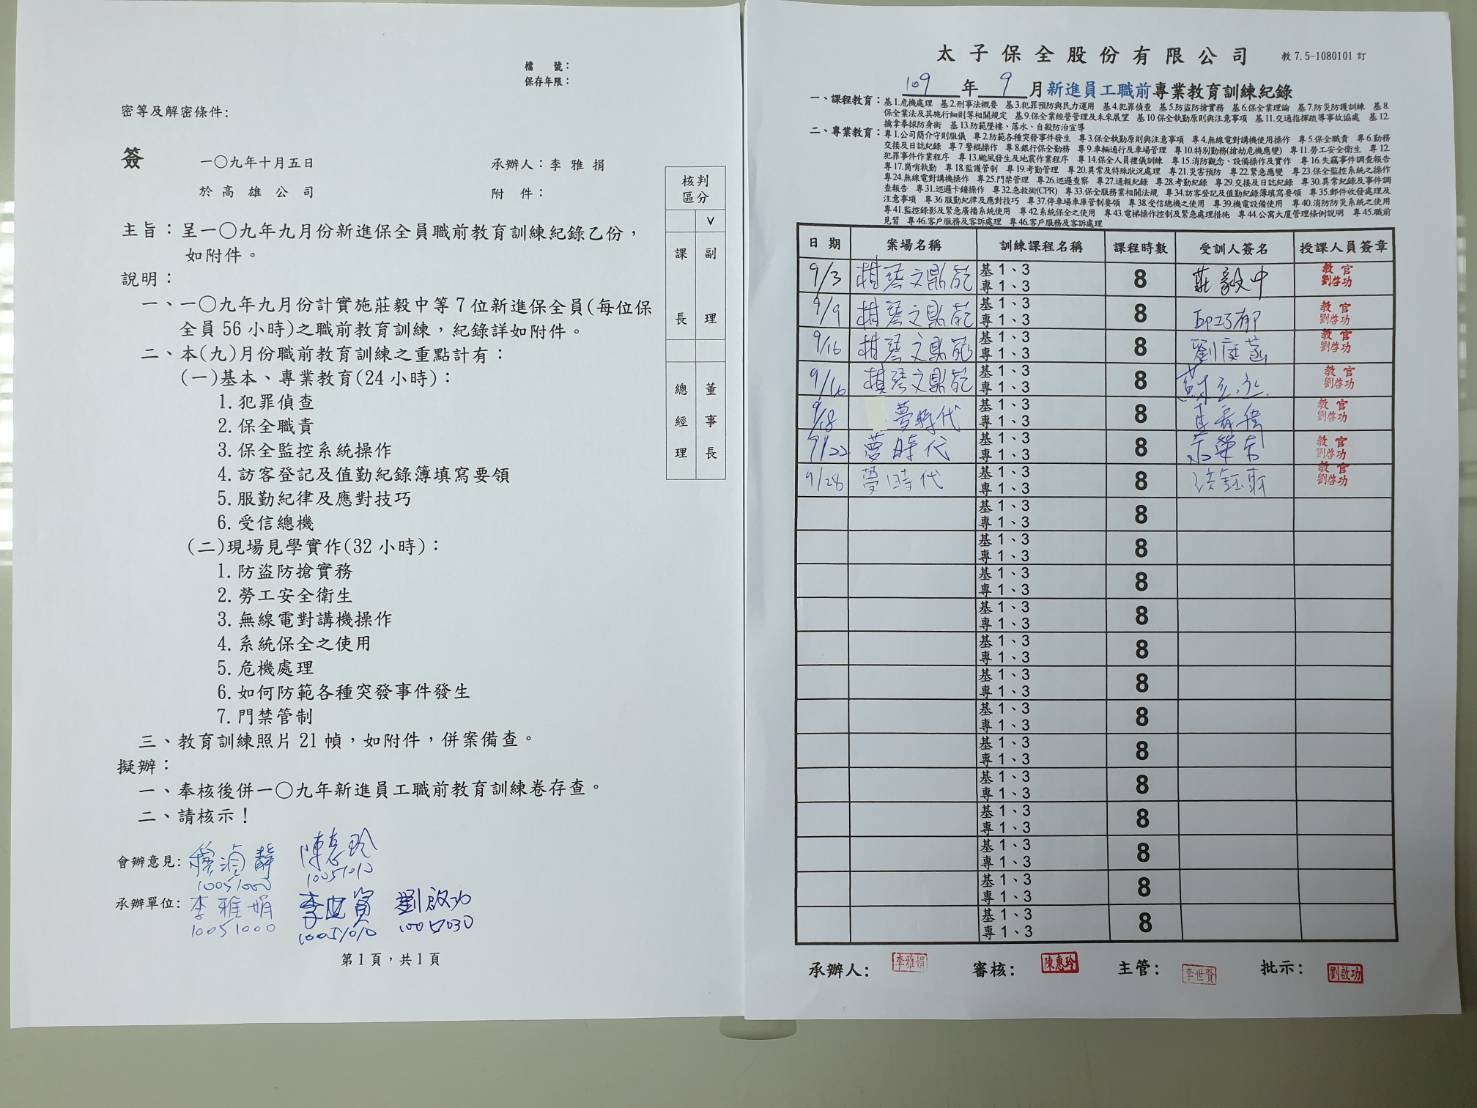 檔　號：
保存年限：
密等及解密條件：
簽　一〇九年十月五日　承辦人：李雅捐
於高雄公司　附件：
核判區分
∨
課長　副理
總經理　董事長
主旨：呈一〇九年九月份新進保全員職前教育訓練紀錄乙份，
如附件。
說明：
一、一〇九年九月份計實施莊毅中等7位新進保全員(每位保
全員56小時)之職前教育訓練，紀錄詳如附件。
二、本(九)月份職前教育訓練之重點計有：
(一)基本、專業教育(24小時)：
1.犯罪偵查
2.保全職責
3.保全監控系統操作
4.訪客登記及值勤紀錄簿填寫要領
5.服勤紀律及應對技巧
6.受信總機
(二)現場見學實作(32小時)：
1.防盜防搶實務
2.勞工安全衛生
3.無線電對講機操作
4.系統保全之使用
5.危機處理
6.如何防範各種突發事件發生
7.門禁管制
三、教育訓練照片21幀，如附件，併案備查。
擬辦：
一、奉核後併一〇九年新進員工職前教育訓練卷存查。
二、請核示！
會辦意見：
承辦單位：李雅娟 劉啟功
第1頁，共1頁
太子保全股份有限公司　教7.5-1080101訂
109年9月新進員工職前專業教育訓練紀錄
一、課程教育：基1.危機處理 基2.刑事法概要 基3.犯罪預防與民力運用 基4.犯罪偵查 基5.防盜防搶實務 基6.保全業理論 基7.防災防護訓練 基8.
保全業法及其施行細則等相關規定 基9.保全業經營管理及未來展望 基10保全執勤原則與注意事項 基11.交通指揮疏導事故協處 基12.
擒拿奉採防身術 基13.防範墜樓、落水、自殺防治宣導
二、專業教育：專1.公司簡介守則服儀 專2.防範各種突發事件發生 專3.保全執勤原則與注意事項 專4.無線電對講機使用操作 專5.保全職責 專6.勤務
交接及日誌紀錄 專7警棍操作 專8.銀行保全勤務 專9.車輛通行及車場管理 專10.特別勤務(搶劫危機應變) 專11.勞工安全衛生 專12.
犯罪事件作業程序 專13.颱風發生及地震作業程序 專14.保全人員禮儀訓練 專15.消防觀念、設備操作及實作 專16.失竊事件調查報告
專17.崗哨執勤 專18.監護管制 專19.考勤管理 專20.異常及特殊狀況處理 專21.災害預防 專22.緊急應變 專23.保全監控系統之操作
專24.無線電對講機操作 專25.門禁管理 專26.巡邏查察 專27.通報紀錄 專28.考勤紀錄 專29.交接及日誌紀錄 專30.異常紀錄及事件調
查報告 專31.巡邏卡鐘操作 專32.急救術(CPR) 專33.保全服務業相關法規 專34.訪客登記及值勤紀錄簿填寫要領 專35.郵件收發處理及
注意事項 專36服勤紀律及應對技巧 專37.停車場車庫管制要領 專38.受信總機之使用 專39.機電設備使用 專40.消防防災系統之使用
專41.監控錄影及緊急廣播系統使用 專42.系統保全之使用 專43.電梯操作控制及緊急處理措施 專44.公寓大廈管理條例說明 專45.職前
見習 專46.客戶服務及客訴處理 專46.客戶服務及客訴處理
日期　案場名稱　訓練課程名稱　課程時數　受訓人簽名　授課人員簽章
9/3　基1、3 專1、3　8　莊毅中　教官 劉啓功
9/9　基1、3 專1、3　8　教官 劉啓功
9/16　基1、3 專1、3　8　教官 劉啓功
9/16　基1、3 專1、3　8　教官 劉啓功
9/18　夢時代　基1、3 專1、3　8　教官 劉啓功
9/22　夢時代　基1、3 專1、3　8　教官 劉啓功
9/28　夢時代　基1、3 專1、3　8　教官 劉啓功
基1、3 專1、3　8
基1、3 專1、3　8
基1、3 專1、3　8
基1、3 專1、3　8
基1、3 專1、3　8
基1、3 專1、3　8
基1、3 專1、3　8
基1、3 專1、3　8
基1、3 專1、3　8
基1、3 專1、3　8
基1、3 專1、3　8
基1、3 專1、3　8
基1、3 專1、3　8
承辦人：李雅捐　審核：陳惠玲　主管：李世賢　批示：劉啟功